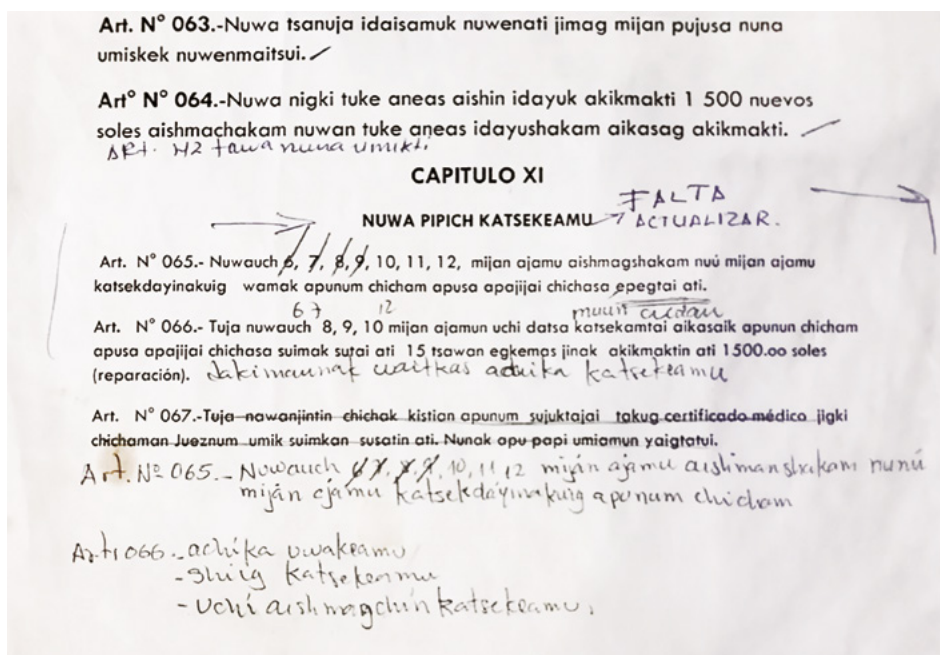 Art. N° 063.-Nuwa tsanuja idaisamuk nuwenati jimag mijan pujusa nuna
umiskek nuwenmaitsui.
Art° N° 064.-Nuwa nigki tuke aneas aishin idayuk akikmakti 1 500 nuevos
soles aishmachakam nuwan tuke aneas idayushakam aikasag akikmakti.
ARt. 42 tawa nuna umikti
CAPITULO XI
FALTA
NUWA PIPICH KATSEKEAMU → ACTUALIZAR.
Art. N° 065.- Nuwauch 6, 7, 8, 9, 10, 11, 12, mijan ajamu aishmagshakam nuú mijan ajamu
katsekdayinakuig wamak apunum chicham apusa apajijai chichasa epegtai ati.
6 7 12 muun
Art. N° 066.- Tuja nuwauch 8, 9, 10 mijan ajamun uchi datsa katsekamtai aikasaik apunun chicham
apusa apajijai chichasa suimak sutai ati 15 tsawan egkemas jinak akikmaktin ati 1500.oo soles
(reparación). waitkas achika katsekeamu
Art. N° 067.-Tuja nawanjintin chichak kistian apunum sujuktajai takug certificado médico jigki
chichaman Jueznum umik suimkan susatin ati. Nunak apu papi umiamun yaigtatui.
Art. Nº 065.- Nuwauch 6, 7, 8, 9, 10, 11, 12 miján ajamu aishmanshakam nunú
miján ajamu katsekdayinakuig apunum chicham
Art. 066.- achika uwakeamu
- katsekeamu
- Uchi aishmagchin katsekeamu.